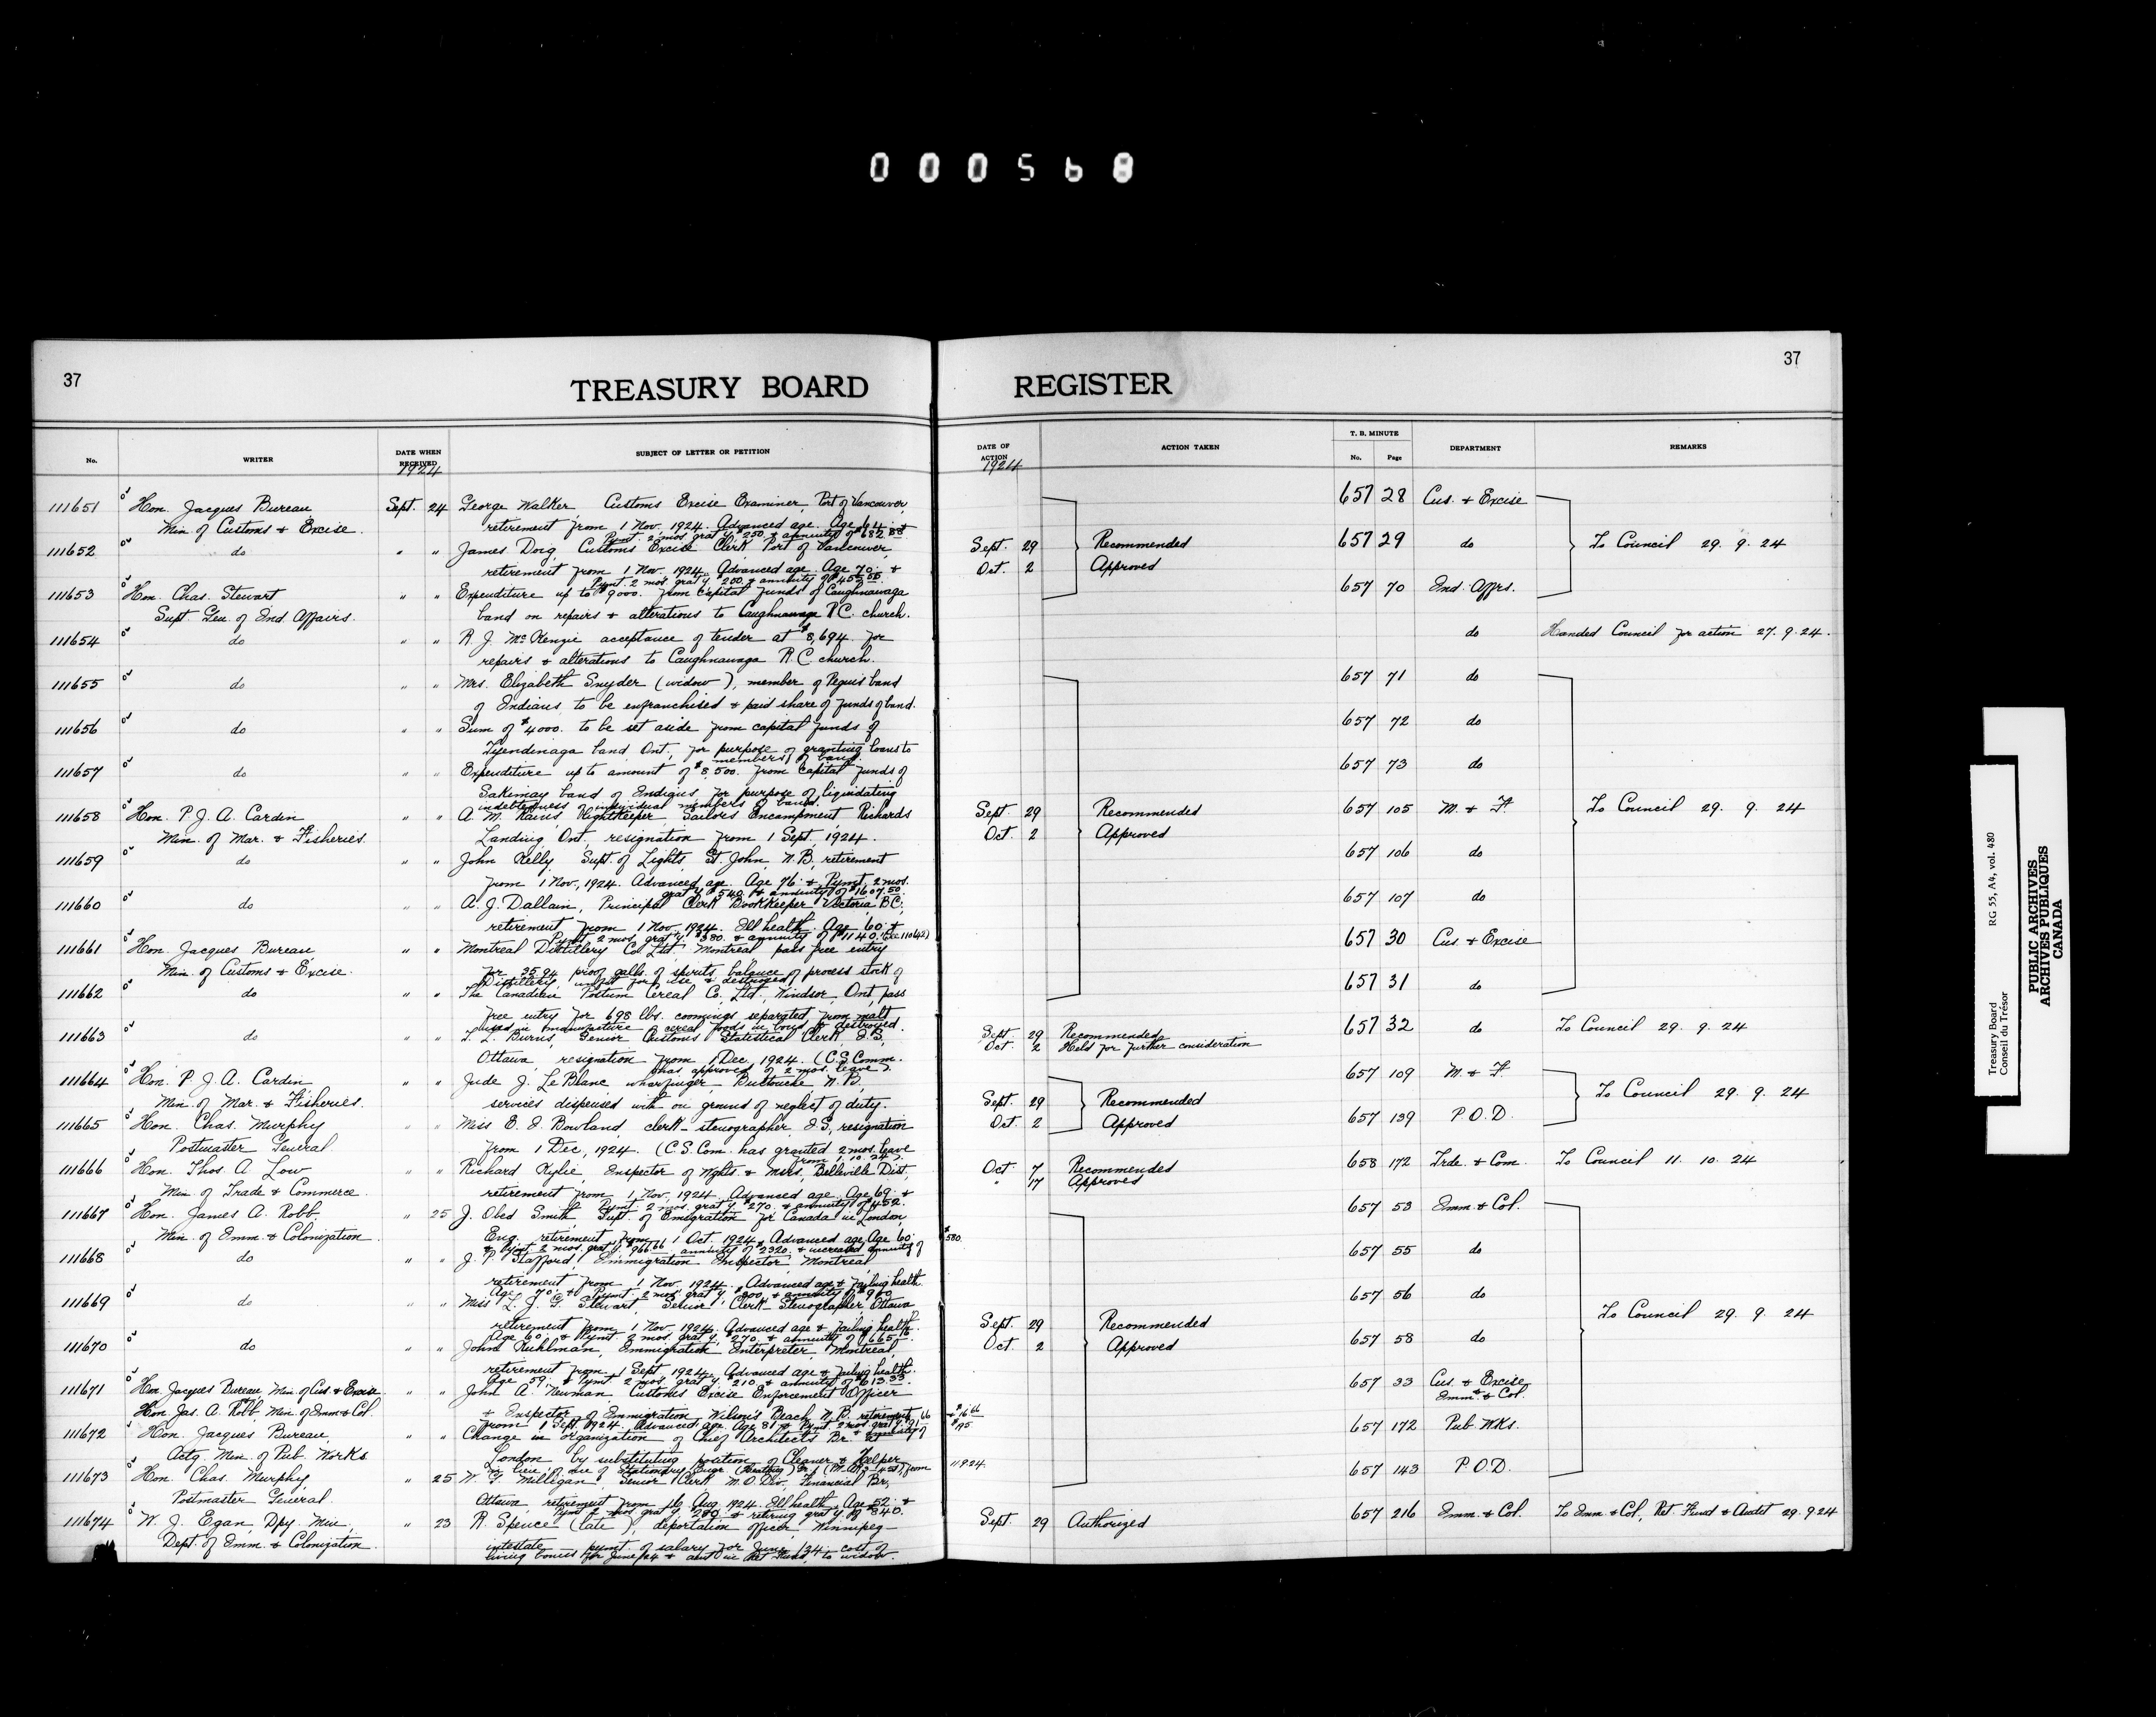 000568
37
TREASURY BOARD
REGISTER
37
No.
WRITER
DATE WHEN RECEIVED
1924
SUBJECT OF LETTER OR PETITION
DATE OF ACTION
1924
ACTION TAKEN
T. B. MINUTE
No. Page
DEPARTMENT
REMARKS
111651 Hon. Jacques Bureau Sept. 24 George Walker, Customs Excise Examiner, Port of Vancouver, 657 28 Cus. & Excise
Min. of Customs & Excise. retirement from 1 Nov, 1924. Advanced age. Age 64 &
Pymt. 2 mos. grat'y. $250. & annuity of $682.88
111652 do " " James Doig, Customs Excise Clerk Port of Vancouver, Sept. 29 Recommended 657 29 do To Council 29. 9. 24
retirement from 1 Nov. 1924. Advanced age. Age 70. & Oct. 2 Approved
Pymt. 2 mos. grat'y. 200. & annuity of
111653 Hon. Chas. Stewart " " Expenditure up to $9000. from capital funds of Caughnawaga 657 70 Ind. Affrs.
Supt. Gen. of Ind. Affairs. band on repairs & alterations to Caughnawaga R.C. church.
111654 do " " R. J. McKenzie acceptance of tender at $8,694 for do Handed Council for action 27.9.24.
repairs & alterations to Caughnawaga R.C. church.
111655 do " " Mrs. Elizabeth Snyder (widow), member of Peguis band 657 71 do
of Indians to be enfranchised & paid share of funds of band.
111656 do " " Sum of $4000. to be set aside from capital funds of 657 72 do
Tyendinaga band Ont, for purpose of granting loans to
members of band.
111657 do " " Expenditure up to amount of $8,500. from capital funds of 657 73 do
Sakimay band of Indians for purpose of liquidating
indebtedness of individual members of band.
111658 Hon. P. J. A. Cardin " " A. M. Rains Lightkeeper, Sailors Encampment Richards Sept. 29 Recommended 657 105 M. & F. To Council 29. 9. 24
Min. of Mar. & Fisheries. Landing, Ont. resignation from 1 Sept, 1924. Oct. 2 Approved
111659 do " " John Kelly Supt. of Lights, St. John N.B. retirement 657 106 do
from 1 Nov., 1924. Advanced age. Age 76. & Pymt. 2 mos.
grat'y. $540. & annuity of $1607.50
111660 do " " A. J. Dallain, Principal Clerk Bookkeeper Victoria, B.C., 657 107 do
retirement from 1 Nov., 1924. Ill health. Age 60. &
Pymt 2 mos. grat'y. $380. & annuity of $1140.
111661 Hon. Jacques Bureau, " " Montreal Distillery Co. Ltd. Montreal pass free entry 657 30 Cus. & Excise
Min. of Customs & Excise. for 35.94 proof galls. of spirits, balance of process stock of
Distillery, unfit for use & destroyed.
111662 do " " The Canadian Postum Cereal Co., Ltd., Windsor, Ont. pass 657 31 do
free entry for 698 lbs. coomings separated from malt
used in manufacture cereal foods in bond & destroyed.
111663 do " " L. L. Burns, Senior Customs Statistical Clerk, I.S., Sept. 29 Recommended 657 32 do To Council 29. 9. 24
Oct. 2 Held for further consideration
Ottawa, resignation from 1 Dec, 1924. (C.S. Comm.
has approved of 2 mos. leave).
111664 Hon. P. J. A. Cardin " " Jude J. LeBlanc wharfinger Buctouche N.B., 657 109 M. & F. To Council 29. 9. 24
Min. of Mar. & Fisheries. services dispensed with on ground of neglect of duty. Sept. 29 Recommended
111665 Hon. Chas. Murphy " " Miss E. I. Bowland, clerk-stenographer I.S., resignation Oct. 2 Approved 657 139 P.O.D.
Postmaster General from 1 Dec, 1924. (C.S. Com. has granted 2 mos. leave
from 1. 10. 24).
111666 Hon. Thos. A. Low " " Richard Kylie, Inspector of Wghts. & Msrs., Belleville Dist, Oct. 7 Recommended 658 172 Trde. & Com. To Council 11. 10. 24
Min. of Trade & Commerce. retirement from 1 Nov, 1924. Advanced age. Age 69. & " 17 Approved
Pymt 2 mos. grat'y. $270. & annuity of $452.
111667 Hon. James A. Robb " 25 J. Obed Smith, Supt. of Emigration for Canada in London, 657 53 Imm. & Col.
Min. of Imm. & Colonization. Eng. retirement from 1 Oct. 1924. Advanced age, Age 60.
& Pymt. 2 mos. grat'y. $966.66 annuity of $2320. & increased annuity of $580.
111668 do " " J. T. Stafford, Immigration Inspector Montreal, 657 55 do
retirement from 1 Nov. 1924. Advanced age & failing health.
Age 70. & Pymt. 2 mos. grat'y. $200. & annuity of $960.
111669 do " " Miss L. J. G. Stewart, Senior Clerk Stenographer, Ottawa, 657 56 do
retirement from 1 Nov. 1924. Advanced age & failing health. Sept. 29 Recommended To Council 29. 9. 24
Age 60. & Pymt. 2 mos. grat'y. $270. & annuity of $665.
111670 do " " John Kuhlman, Immigration Interpreter, Montreal, Oct. 2 Approved 657 58 do
retirement from 1 Sept. 1924. Advanced age & failing health.
Age 59. & Pymt 2 mos. grat'y. $210. & annuity of $613.33.
111671 Hon. Jacques Bureau, Min. of Cus. & Excise " " John A. Newman Customs Excise Enforcement Officer 657 33 Cus. & Excise
Imm. & Col.
Hon. Jas. A. Robb, Min. of Imm & Col. & Inspector of Immigration, Wilson's Beach, N.B. retirement
from 1 Sept. 1924. Advanced age. Age 81 & Pymt 2 mos. grat'y.
111672 Hon. Jacques Bureau, " " Change in organization of Chief Architects Br. at 657 172 Pub. Wks.
Actg. Min. of Pub. Works London by substituting position of Cleaner & Helper
in lieu of one of Stationary Engr. from 1.9.24.
111673 Hon. Chas. Murphy, " 25 W. G. Milligan, Senior Clerk M.O. Div. Financial Br., 657 143 P.O.D.
Postmaster General. Ottawa, retirement from 16 Aug. 1924. Ill health. Age 52. &
Pymt 2 mos. grat'y. & retiring grat'y of $840.
111674 W. J. Egan, Dpy. Min. " 23 R. Spence (late), deportation officer Winnipeg— Sept. 29 Authorized 657 216 Imm. & Col. To Imm. & Col., Ret. Fund & Audit 29.9.24
Dept. of Imm. & Colonization. intestate pymt. of salary for June/24, cost of
living bonus for June/24 & amt in Ret. Fund, to widow.
Treasury Board
Conseil du Trésor
RG 55, A4, vol. 480
PUBLIC ARCHIVES
ARCHIVES PUBLIQUES
CANADA